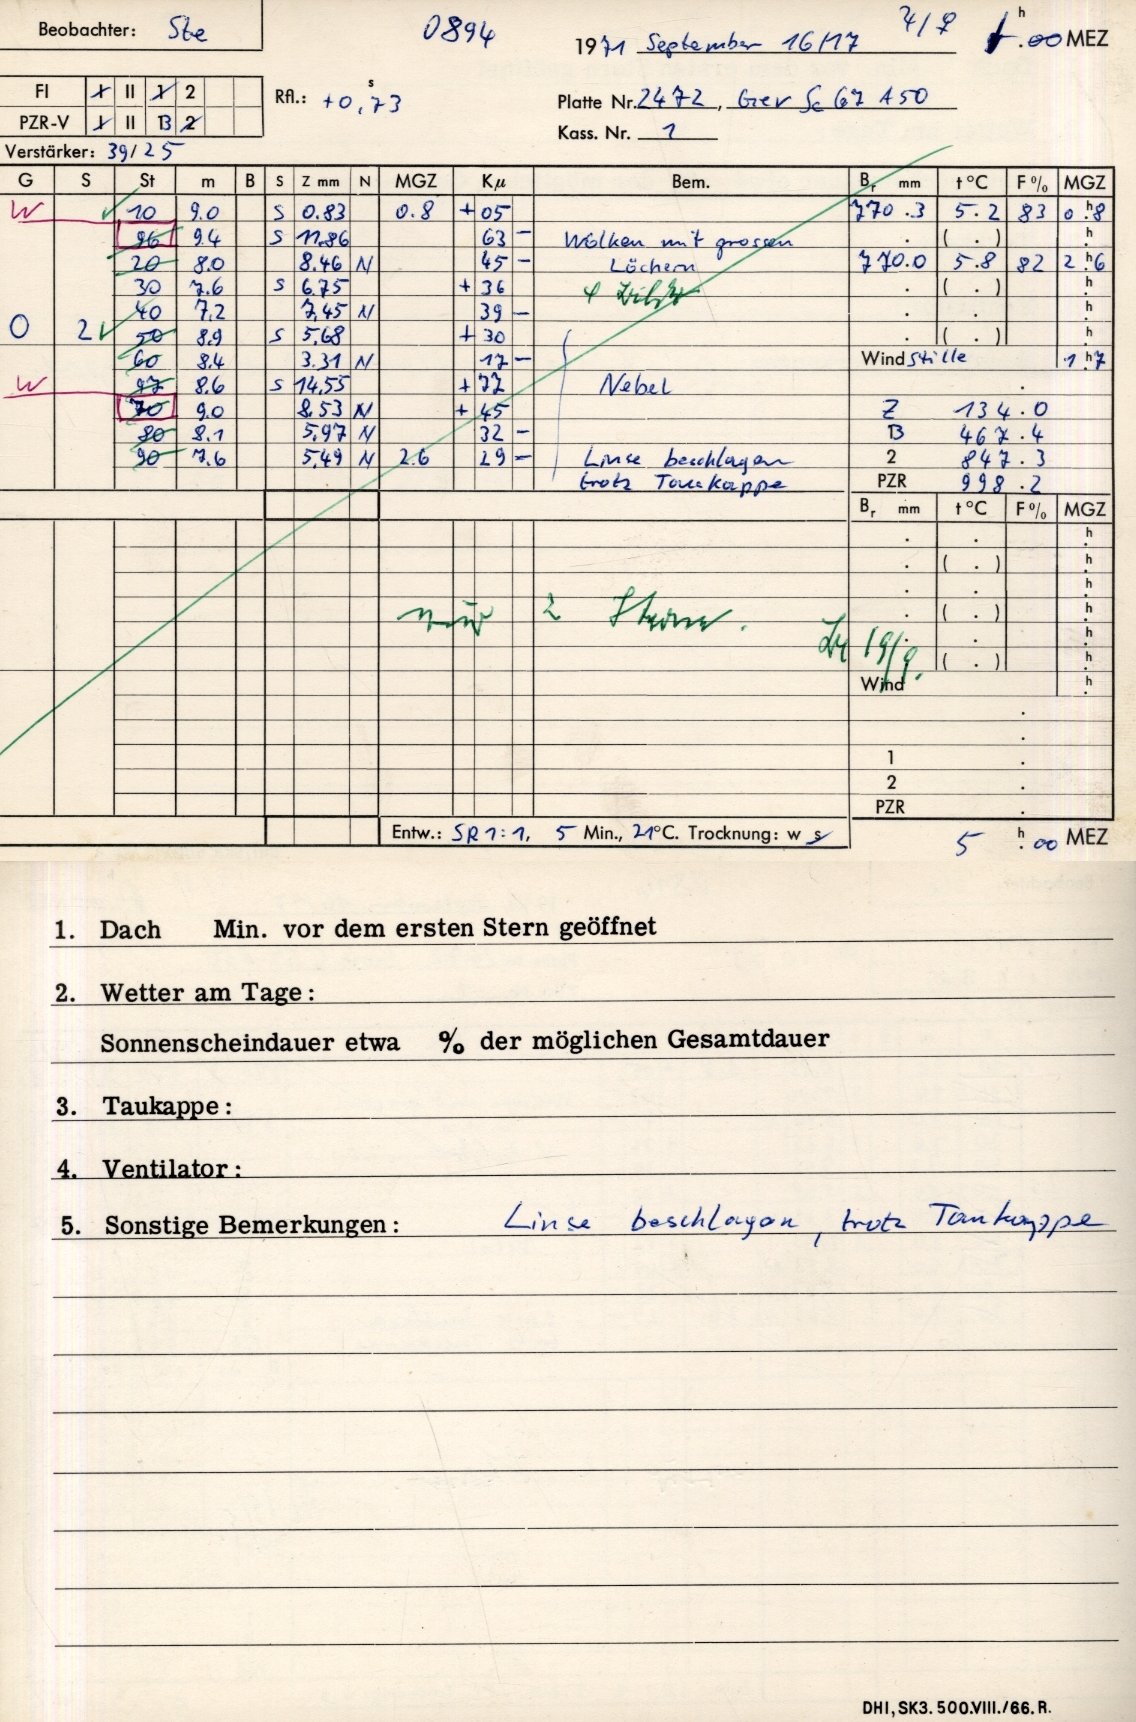 Beobachter: Ste 0894 1971 September 16/17 4/9 1 h .00 MEZ
FI 1 II 1 2 Rfl.: +0,73 s Platte Nr. 2472, Gev Sc 67 A50
PZR-V 1 II B 2 Kass. Nr. 1
Verstärker: 39/25
G S St m B S Z mm N MGZ Kμ Bem. Br mm t °C F% MGZ
W 10 9.0 S 0.83 0.8 +05 770.3 5.2 83 0.h8
96 9.4 S 11.86 63 – Wolken mit grossen . ( . ) h.
20 8.0 8.46 N 45 – Löchern 770.0 5.8 82 2.h6
30 7.6 S 6.75 +36 . ( . ) h.
40 7.2 7.45 N 39 – . . h.
O 2 50 8.9 S 5.68 +30 . ( . ) h.
60 8.4 3.31 N 17 – Wind stille 1.h7
W 97 8.6 S 14.55 +77 Nebel .
70 9.0 8.53 N +45 Z 134.0
80 8.1 5.97 N 32 – B 467.4
90 7.6 5.49 N 2.6 29 – Linse beschlagen 2 847.3
trotz Taukappe PZR 998.2
Br mm t °C F% MGZ
. . h.
. ( . ) h.
. . h.
nur 2 Sterne. . ( . ) h.
19/9. . . h.
. ( . ) h.
Wind h.
.
.
1 .
2 .
PZR .
Entw.: SR 1:1, 5 Min., 21°C. Trocknung: w s 5 h .00 MEZ
1. Dach Min. vor dem ersten Stern geöffnet
2. Wetter am Tage:
Sonnenscheindauer etwa % der möglichen Gesamtdauer
3. Taukappe:
4. Ventilator:
5. Sonstige Bemerkungen: Linse beschlagen, trotz Taukappe
DHI, SK3. 500.VIII./66. R.